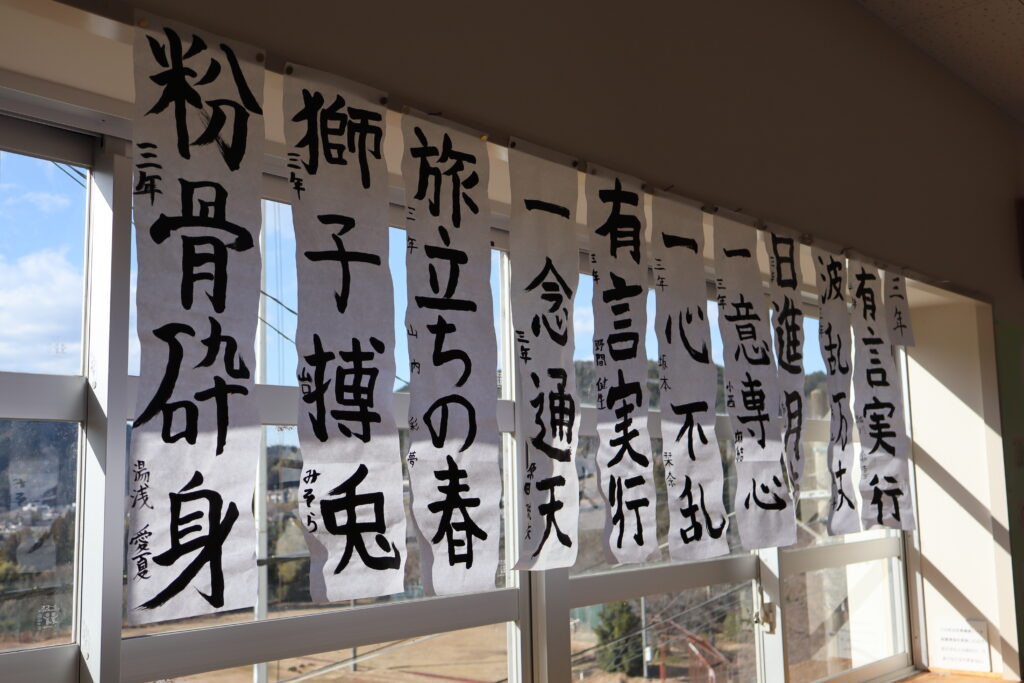 粉骨砕身
三年
湯浅 愛夏
獅子搏兎
三年
みそら
旅立ちの春
三年
山内 彩夢
一念通天
三年
有言実行
三年
野間 健生
一心不乱
三年
坂本 栞奈
一意専心
三年
小西
日進月歩
波乱万丈
有言実行
三年